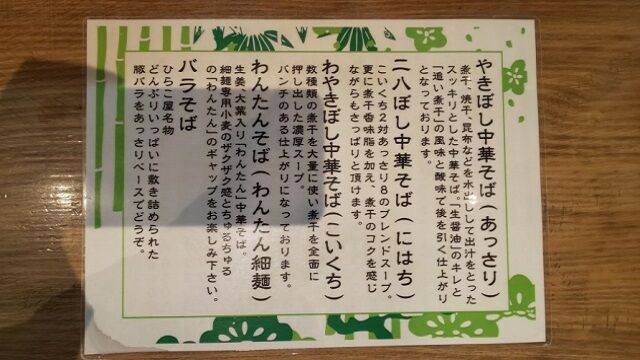 やきぼし中華そば(あっさり)
煮干、焼干、昆布などを水出しして出汁をとった
スッキリとした中華そば。「生醤油」のキレと
「追い煮干」の風味と酸味で後を引く仕上がり
となっております。
二八ぼし中華そば(にはち)
こいくち2対あっさり8のブレンドスープ。
更に煮干香味脂を加え、煮干のコクを感じ
ながらもさっぱりと頂けます。
わやきぼし中華そば(こいくち)
数種類の煮干を大量に使い煮干を全面に
押し出した濃厚スープ。
パンチのある仕上がりになっております。
わんたんそば(わんたん細麺)
生姜、大葉入り「わんたん」中華そば。
細麺専用小麦のザクザク感とちゅるちゅる
の「わんたん」のギャップをお楽しみ下さい。
バラそば
ひらこ屋名物
どんぶりいっぱいに敷き詰められた
豚バラをあっさりベースでどうぞ。